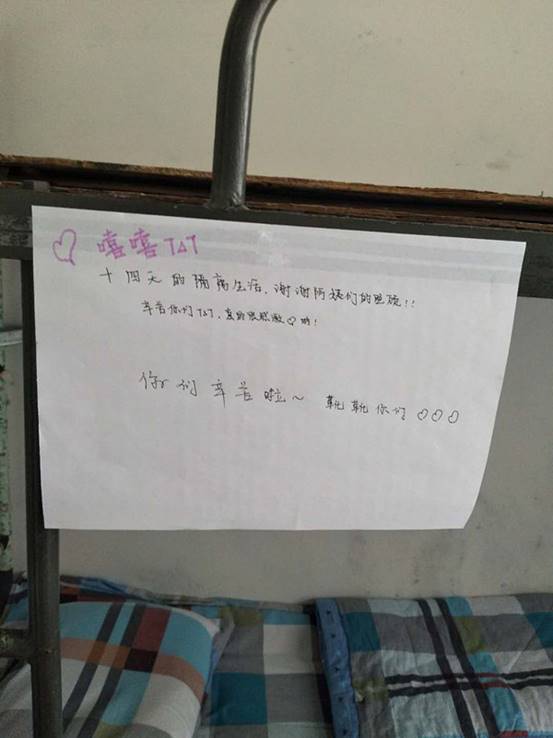 ♡ 嘻嘻TAT
十四天的隔离生活,谢谢阿姨们的照顾!!
辛苦你们TAT,真的很感激♡哟!
你们辛苦啦~ 靴靴你们♡♡♡